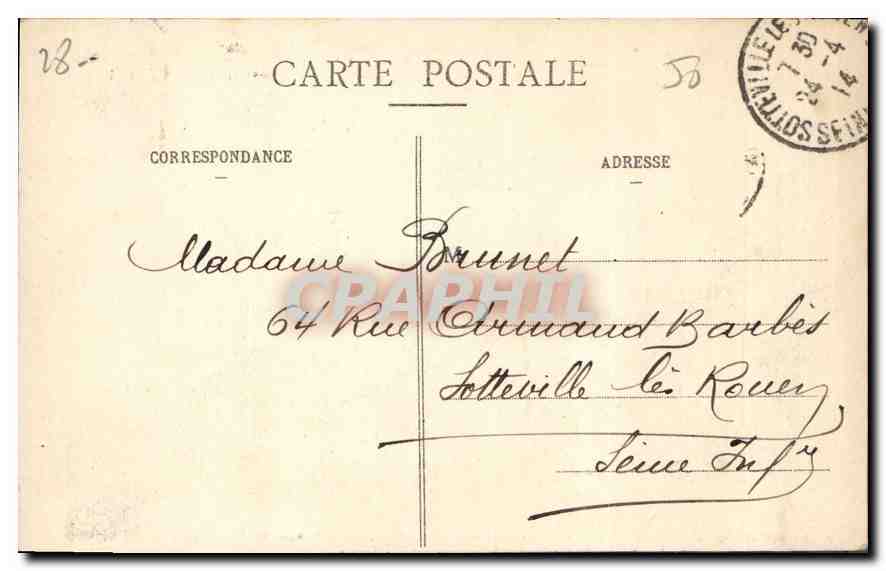 28-
CARTE POSTALE
50
SOTTEVILLE LES
7 30
24 -4
14
SEINE
CORRESPONDANCE
ADRESSE
Madame Brunet
M
CPAPHIL
64 Rue Armand Barbès
Sotteville lès Rouen
Seine Infr